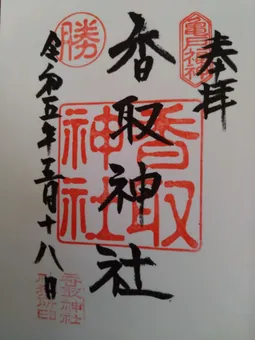 奉拝
亀戸
香取神社
香取神社
勝
令和五年三月十八日
香取神社
社務所印